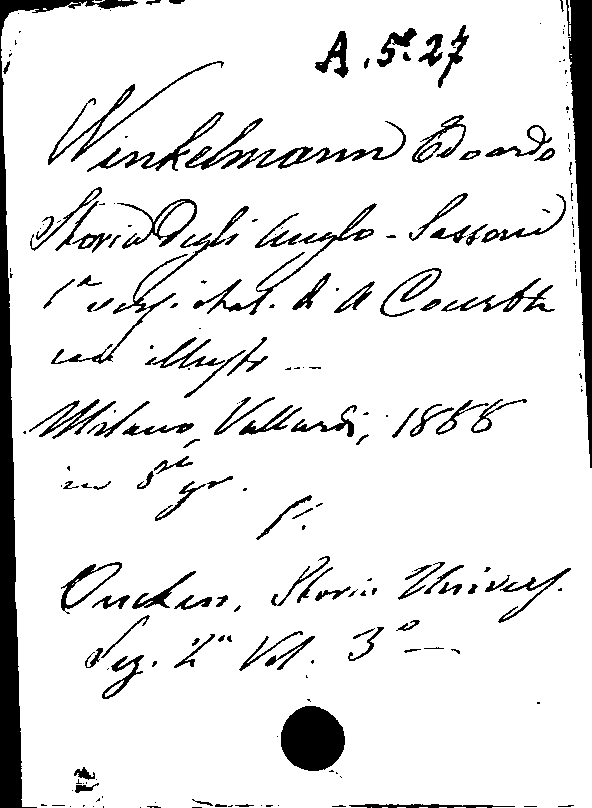 A. 5ª. 27
Winkelmann Edoardo
Storia degli Anglo-Sassoni
1ª vers. ital. di A Courth
con illustr
Milano, Vallardi, 1888
in 8° gr.
f.
Oncken, Storia Univers.
Sez. 2ª Vol. 3°